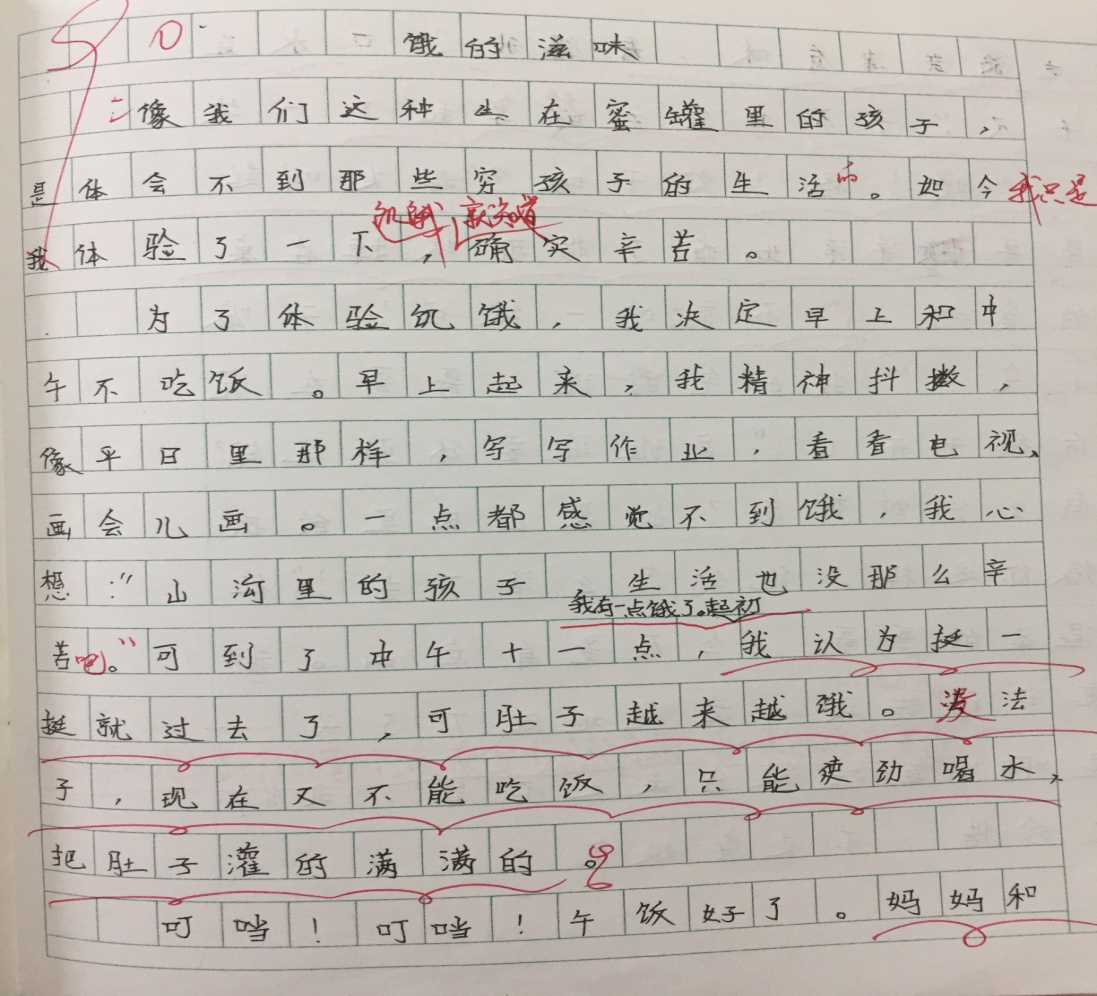 饿的滋味
像我们这种生在蜜罐里的孩子，
是体会不到那些穷孩子的生活的。如今我只是
饥饿，就知道
我体验了一下，确实辛苦。
为了体验饥饿，我决定早上和中
午不吃饭。早上起来，我精神抖擞，
像平日里那样，写写作业，看看电视、
画会儿画。一点都感觉不到饿，我心
想：“山沟里的孩子 生活也没那么辛
我有一点饿了。起初
苦吧。”可到了中午十一点，我认为挺一
挺就过去了，可肚子越来越饿。没法
子，现在又不能吃饭，只能使劲喝水，
把肚子灌的满满的。
叮当！叮当！午饭好了。妈妈和